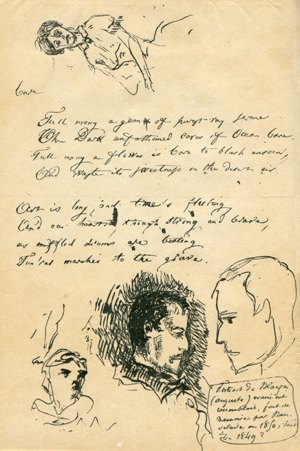 Full many a gem of purest ray serene
The Dark unfathomed caves of Ocean bear.
Full many a flower is born to blush unseen,
And waste its sweetness on the desert air.
Art is long, and time's fleeting
And our though strong and brave,
as muffled drums are beating
Fun'ral marches to the grave.
Portrait de
(Auguste) vraiment
ressemblant, fait de
mémoire par
en
1849?